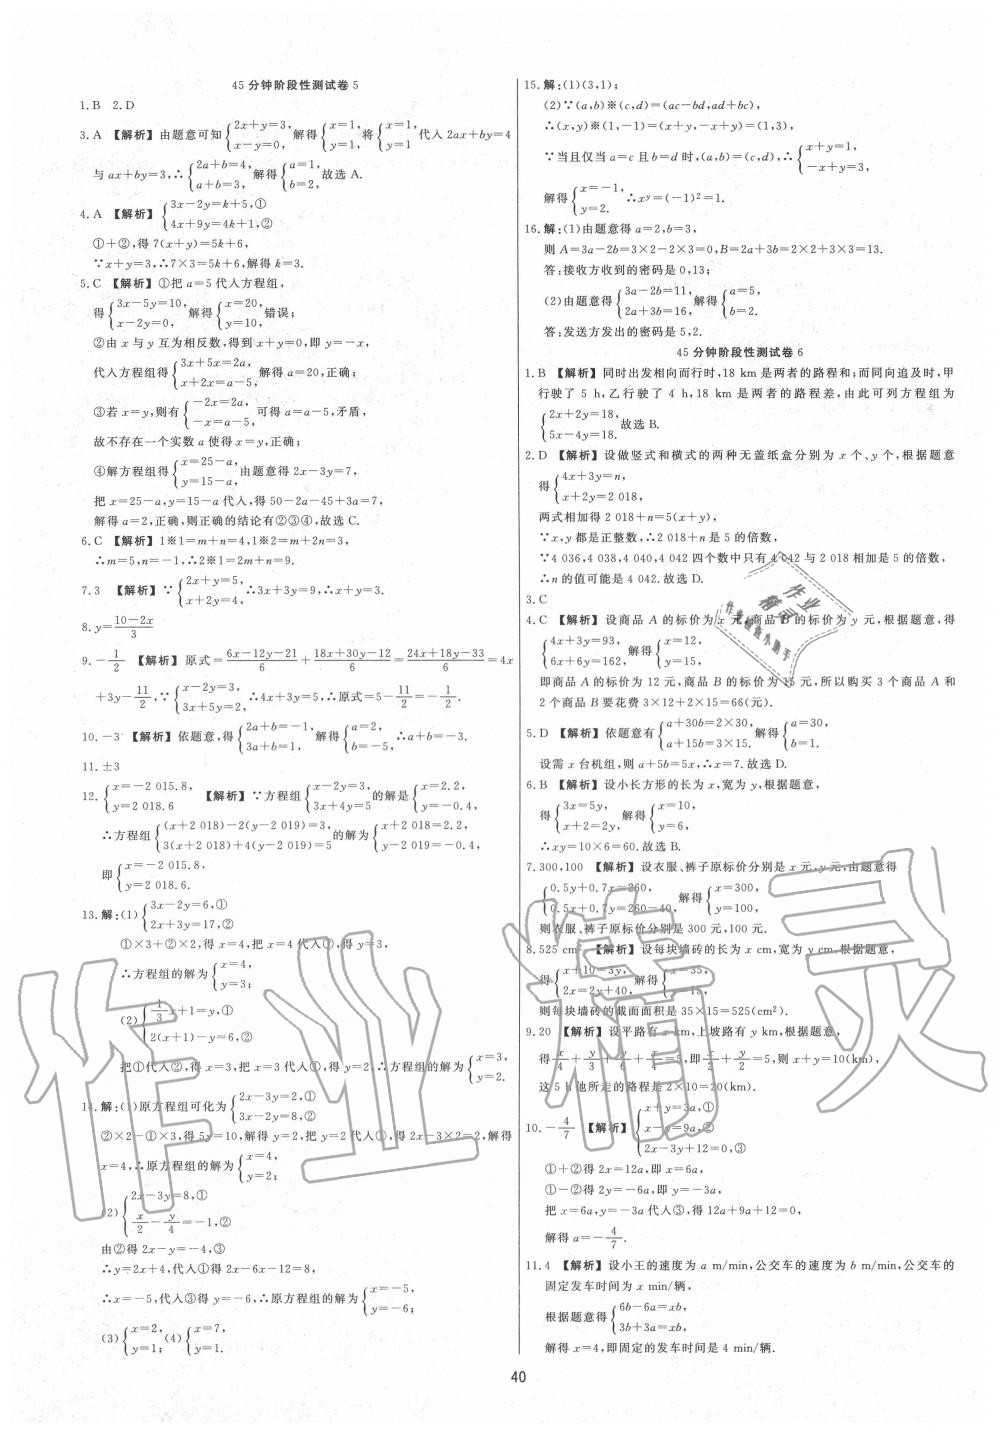 45 分钟阶段性测试卷 5
1.B  2.D
3.A 【解析】由题意可知{2x+y=3, x-y=0, 解得{x=1, y=1, 将{x=1, y=1 代入 2ax+by=4
与 ax+by=3,∴{2a+b=4, a+b=3, 解得{a=1, b=2, 故选 A.
4.A 【解析】{3x-2y=k+5,① 4x+9y=4k+1,②
①+②,得 7(x+y)=5k+6,
∵x+y=3,∴7×3=5k+6,解得 k=3.
5.C 【解析】①把 a=5 代入方程组,
得{3x-5y=10, x-2y=0, 解得{x=20, y=10, 错误;
②由 x 与 y 互为相反数,得到 x+y=0,即 y=-x,
代入方程组得{3x+5x=2a, x+2x=a-5, 解得 a=20,正确;
③若 x=y,则有{-2x=2a, -x=a-5, 可得 a=a-5,矛盾,
故不存在一个实数 a 使得 x=y,正确;
④解方程组得{x=25-a, y=15-a, 由题意得 2x-3y=7,
把 x=25-a,y=15-a 代入,得 50-2a-45+3a=7,
解得 a=2,正确,则正确的结论有②③④,故选 C.
6.C 【解析】1※1=m+n=4,1※2=m+2n=3,
∴m=5,n=-1,∴2※1=2m+n=9.
7.3 【解析】∵{2x+y=5, x+2y=4, ∴3x+3y=9,∴x+y=3.
8.y=(10-2x)/3
9.-1/2 【解析】原式=(6x-12y-21)/6+(18x+30y-12)/6=(24x+18y-33)/6=4x
+3y-11/2,∵{x-2y=3, 3x+5y=2, ∴4x+3y=5,∴原式=5-11/2=-1/2.
10.-3 【解析】依题意,得{2a+b=-1, 3a+b=1, 解得{a=2, b=-5, ∴a+b=-3.
11.±3
12.{x=-2 015.8, y=2 018.6 【解析】∵方程组{x-2y=3, 3x+4y=5 的解是{x=2.2, y=-0.4,
∴方程组{(x+2 018)-2(y-2 019)=3, 3(x+2 018)+4(y-2 019)=5 的解为{x+2 018=2.2, y-2 019=-0.4,
即{x=-2 015.8, y=2 018.6.
13.解:(1){3x-2y=6,① 2x+3y=17,②
①×3+②×2,得 x=4,把 x=4 代入①,得 y=3,
∴方程组的解为{x=4, y=3;
(2){1/3 x+1=y,① 2(x+1)-y=6,②
把①代入②,得 x=3,把 x=3 代入①,得 y=2,∴方程组的解为{x=3, y=2.
14.解:(1)原方程组可化为{2x-3y=2,① 3x-2y=8,②
②×2-①×3,得 5y=10,解得 y=2,把 y=2 代入①,得 2x-3×2=2,解得
x=4,∴原方程组的解为{x=4, y=2;
(2){2x-3y=8,① x/2-y/4=-1,②
由②得 2x-y=-4,③
∴y=2x+4,代入①得 2x-6x-12=8,
∴x=-5,代入③得 y=-6,∴原方程组的解为{x=-5, y=-6;
(3){x=2, y=1; (4){x=7, y=1.
15.解:(1)(3,1);
(2)∵(a,b)※(c,d)=(ac-bd,ad+bc),
∴(x,y)※(1,-1)=(x+y,-x+y)=(1,3),
∵当且仅当 a=c 且 b=d 时,(a,b)=(c,d),∴{x+y=1, -x+y=3,
解得{x=-1, y=2. ∴x^y=(-1)²=1.
16.解:(1)由题意得 a=2,b=3,
则 A=3a-2b=3×2-2×3=0,B=2a+3b=2×2+3×3=13.
答:接收方收到的密码是 0,13;
(2)由题意得{3a-2b=11, 2a+3b=16, 解得{a=5, b=2.
答:发送方发出的密码是 5,2.
45 分钟阶段性测试卷 6
1.B 【解析】同时出发相向而行时,18 km 是两者的路程和;而同向追及时,甲
行驶了 5 h,乙行驶了 4 h,18 km 是两者的路程差,由此可列方程组为
{2x+2y=18, 5x-4y=18. 故选 B.
2.D 【解析】设做竖式和横式的两种无盖纸盒分别为 x 个、y 个,根据题意
得{4x+3y=n, x+2y=2 018,
两式相加得 2 018+n=5(x+y),
∵x,y 都是正整数,∴2 018+n 是 5 的倍数,
∵4 036,4 038,4 040,4 042 四个数中只有 4 042 与 2 018 相加是 5 的倍数,
∴n 的值可能是 4 042.故选 D.
3.C
4.C 【解析】设商品 A 的标价为 x 元,商品 B 的标价为 y 元,根据题意,得
{4x+3y=93, 6x+6y=162, 解得{x=12, y=15,
即商品 A 的标价为 12 元,商品 B 的标价为 15 元,所以购买 3 个商品 A 和
2 个商品 B 要花费 3×12+2×15=66(元).
5.D 【解析】依题意有{a+30b=2×30, a+15b=3×15. 解得{a=30, b=1.
设需 x 台机组,则 a+5b=5x,∴x=7.故选 D.
6.B 【解析】设小长方形的长为 x,宽为 y,根据题意,
得{3x=5y, x+2=2y, 解得{x=10, y=6,
∴xy=10×6=60.故选 B.
7.300,100 【解析】设衣服、裤子原标价分别是 x 元,y 元,由题意得
{0.5y+0.7x=260, 0.5x+0.7y=260-40, 解得{x=300, y=100,
则衣服、裤子原标价分别是 300 元,100 元.
8.525 cm² 【解析】设每块墙砖的长为 x cm,宽为 y cm,根据题意,
得{x+10=3y, 2x=2y+40, 解得{x=35, y=15,
则每块墙砖的截面面积是 35×15=525(cm²).
9.20 【解析】设平路有 x km,上坡路有 y km,根据题意,
得x/4+y/3+y/6+x/4=5,即x/2+y/2=5,则 x+y=10(km),
这 5 h 他所走的路程是 2×10=20(km).
10.-4/7 【解析】{x+y=3a,① x-y=9a,② 2x-3y+12=0,③
①+②得 2x=12a,即 x=6a,
①-②得 2y=-6a,即 y=-3a,
把 x=6a,y=-3a 代入③,得 12a+9a+12=0,
解得 a=-4/7.
11.4 【解析】设小王的速度为 a m/min,公交车的速度为 b m/min,公交车的
固定发车时间为 x min/辆,
根据题意得{6b-6a=xb, 3b+3a=xb,
解得 x=4,即固定的发车时间是 4 min/辆.
40
作业精灵
作业
精灵
作业检查小助手